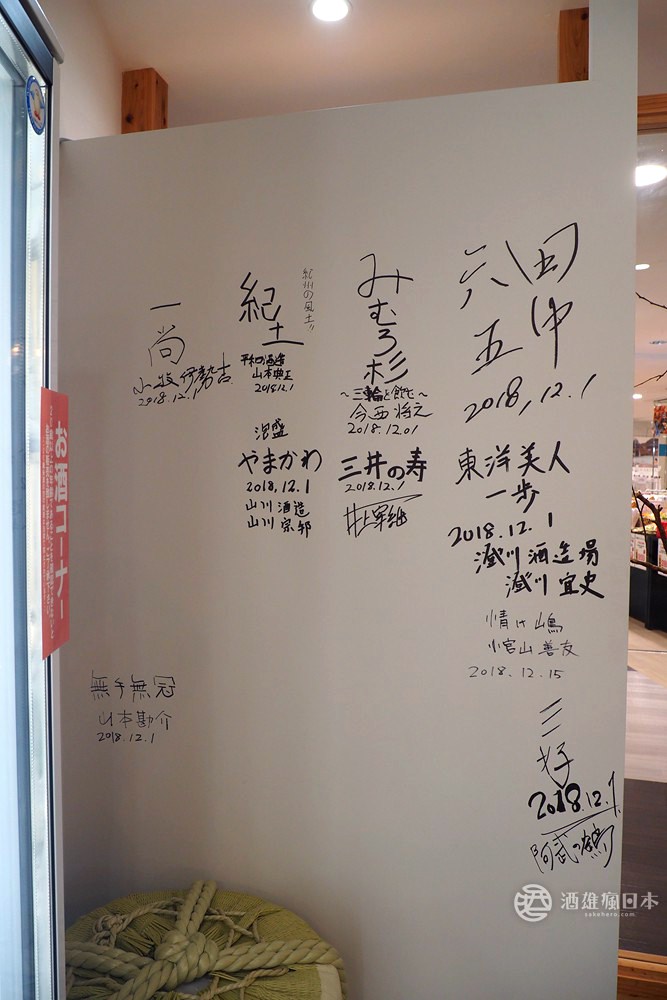 お酒コーナー
一
尚
小牧 伊勢吉
2018.12.1
無手無冠
山本勘介
2018.12.1
紀土
紀州の風土〃
平和酒造
山本典正
2018.12.1
泡盛
やまかわ
2018,12.1
山川酒造
山川宗邦
みむろ杉
～三輪を飲む～
今西将之
2018.12.01
三井の寿
2018.12.1
田中
六十五
2018,12.1
東洋美人
一歩
2018.12.1
澄川酒造場
澄川宜史
2018.12.15
三好
2018.12.1
阿武の鶴
酒雄瘋日本
sakehero.com